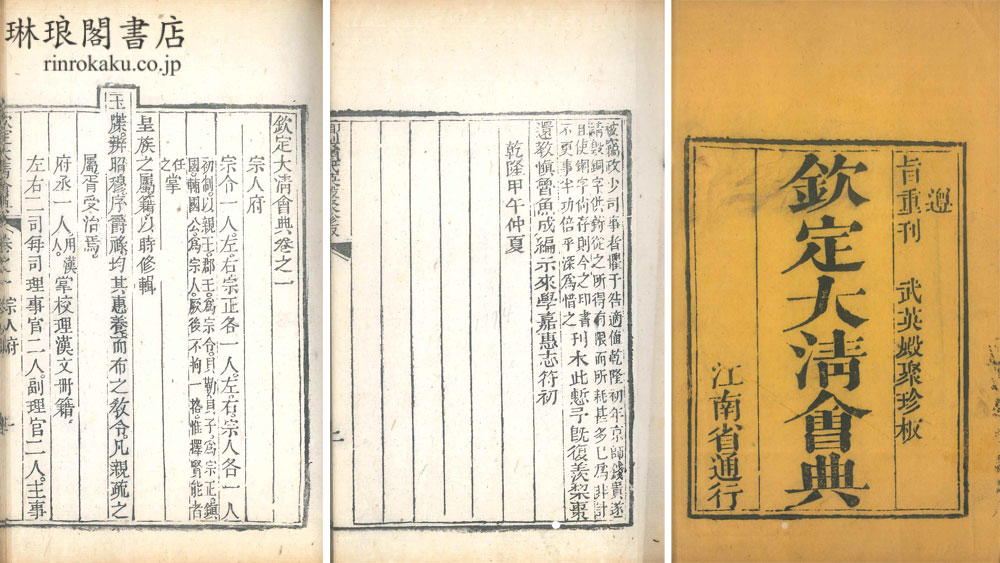 琳琅閣書店
rinrokaku.co.jp
遵
旨重刊 武英殿聚珍板
欽定大清會典
江南省通行
被竊故少司事者懼干咎適值乾隆初年京師錢貴遂
請毀銅字供鑄從之所得有限而所耗甚多已為非計
且使銅字尚存則今之印書
不更事半功倍乎深為惜之
刊木此慙予既復羨梨棗
還教慎魯魚成編示來學嘉惠志符初
乾隆甲午仲夏
欽定大清會典卷之一
宗人府
宗令一人。左右宗正各一人。左右宗人各一人
初制。以親王。郡王。為宗令。貝勒貝子。為宗正。鎮
國輔國公。為宗人。厥後不拘一格。惟擇賢能者
任之
掌
皇族之屬籍以時修輯
玉牒辨昭穆序爵祿均其惠養而布之教令凡親疏之
屬胥受治焉。
府丞一人。用漢人。掌校理漢文冊籍。
左右二司每司理事官二人。副理官二人。主事